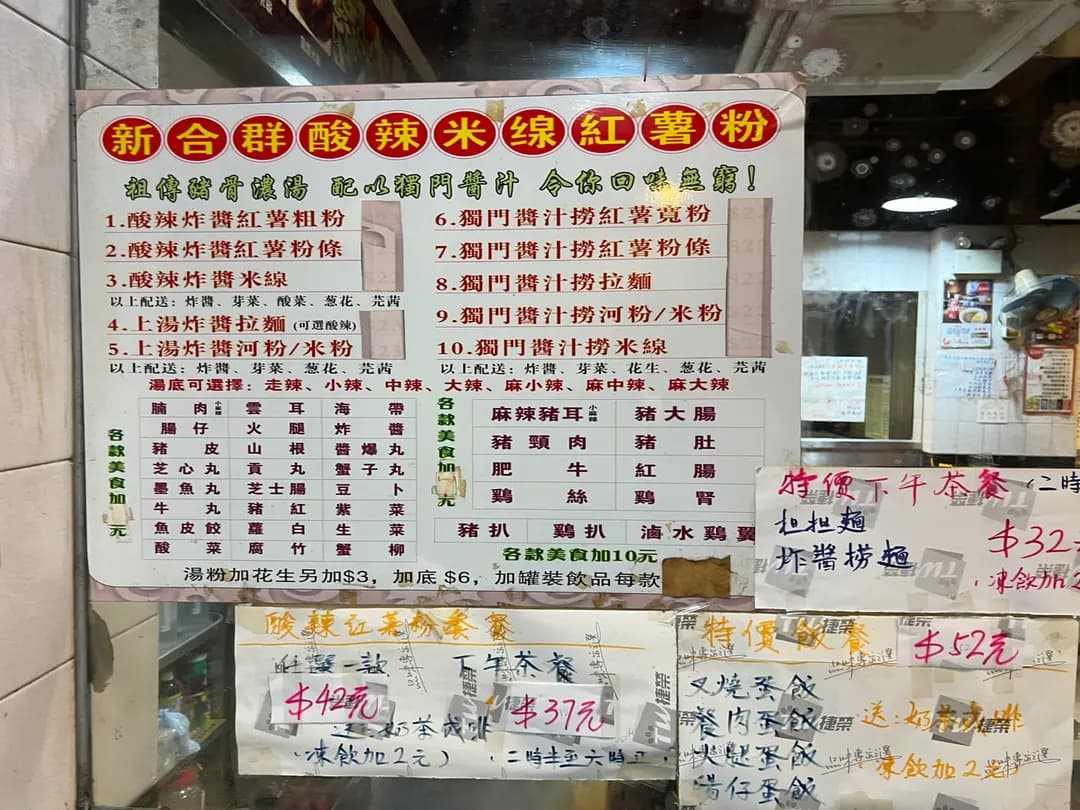 新合群酸辣米线紅薯粉
祖傳豬骨濃湯 配以獨門醬汁 令你回味無窮！
1.酸辣炸醬紅薯粗粉
2.酸辣炸醬紅薯粉條
3.酸辣炸醬米線
以上配送：炸醬、芽菜、酸菜、葱花、芫茜
4.上湯炸醬拉麵(可選酸辣)
5.上湯炸醬河粉/米粉
以上配送：炸醬、芽菜、葱花、芫茜
6.獨門醬汁撈紅薯寬粉
7.獨門醬汁撈紅薯粉條
8.獨門醬汁撈拉麵
9.獨門醬汁撈河粉/米粉
10.獨門醬汁撈米線
以上配送：炸醬、芽菜、花生、葱花、芫茜
湯底可選擇：走辣、小辣、中辣、大辣、麻小辣、麻中辣、麻大辣
各款美食加 元
腩肉 雲耳 海帶
腸仔 火腿 炸醬
豬皮 山根 醬爆丸
芝心丸 貢丸 蟹子丸
墨魚丸 芝士腸 豆卜
牛丸 豬紅 紫菜
魚皮餃 蘿白 生菜
酸菜 腐竹 蟹柳
各款美食加 元
麻辣豬耳 豬大腸
豬頸肉 豬肚
肥牛 紅腸
鷄絲 鷄腎
豬扒 鷄扒 滷水鷄翼
各款美食加10元
湯粉加花生另加$3，加底 $6，加罐裝飲品每款
特價下午茶餐 (二時
担担麵
炸醬撈麵
$32
凍飲加2
酸辣紅薯粉套餐
任選一款 下午茶餐
$42元 $37元
送：奶茶或啡
凍飲加2元） 二時半至六時正
特價飯餐 $52元
叉燒蛋飯
餐肉蛋飯 送：奶茶或啡
火腿蛋飯 凍飲加2元
腸仔蛋飯